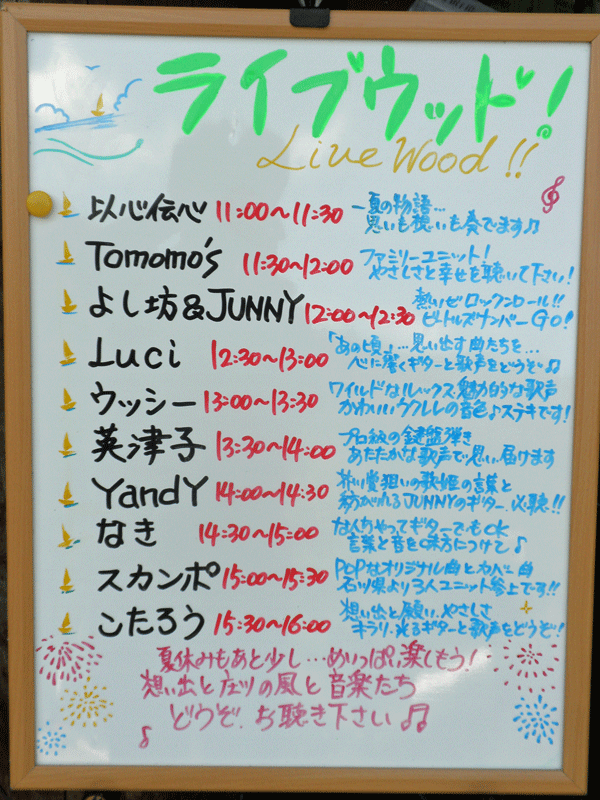 ライブウッド!
Live Wood!!
以心伝心 11:00〜11:30 一夏の物語…
思いも想いも奏でます♫
Tomomo's 11:30〜12:00 ファミリーユニット!
やさしさと幸せを聴いて下さい!
よし坊&JUNNY 12:00〜12:30 熱いゼロックンロール!!
ビートルズナンバーGO!
Luci 12:30〜13:00 「あの頃」…思い出す曲たちを…
心に響くギターと歌声をどうぞ♫
ウッシー 13:00〜13:30 ワイルドなルックス魅力的な歌声
かわいいウクレレの音色♪ステキです!
英津子 13:30〜14:00 プロ級の鍵盤弾き
あたたかな歌声で思い届けます
YandY 14:00〜14:30 芥川賞狙いの歌姫の言葉と
紡がれるJUNNYのギター必聴!!
なき 14:30〜15:00 なんちゃってギターでもOK
言葉と音を味方につけて♪
スカンポ 15:00〜15:30 POPなオリジナル曲とカバー曲
石川県より3人ユニット参上です!!
こたろう 15:30〜16:00 想い出と願い、やさしさ
キラリ光るギターと歌声をどうぞ!
夏休みもあと少し…めいっぱい楽しもう!
想い出と庄川の風と音楽たち
どうぞ、お聴き下さい♫